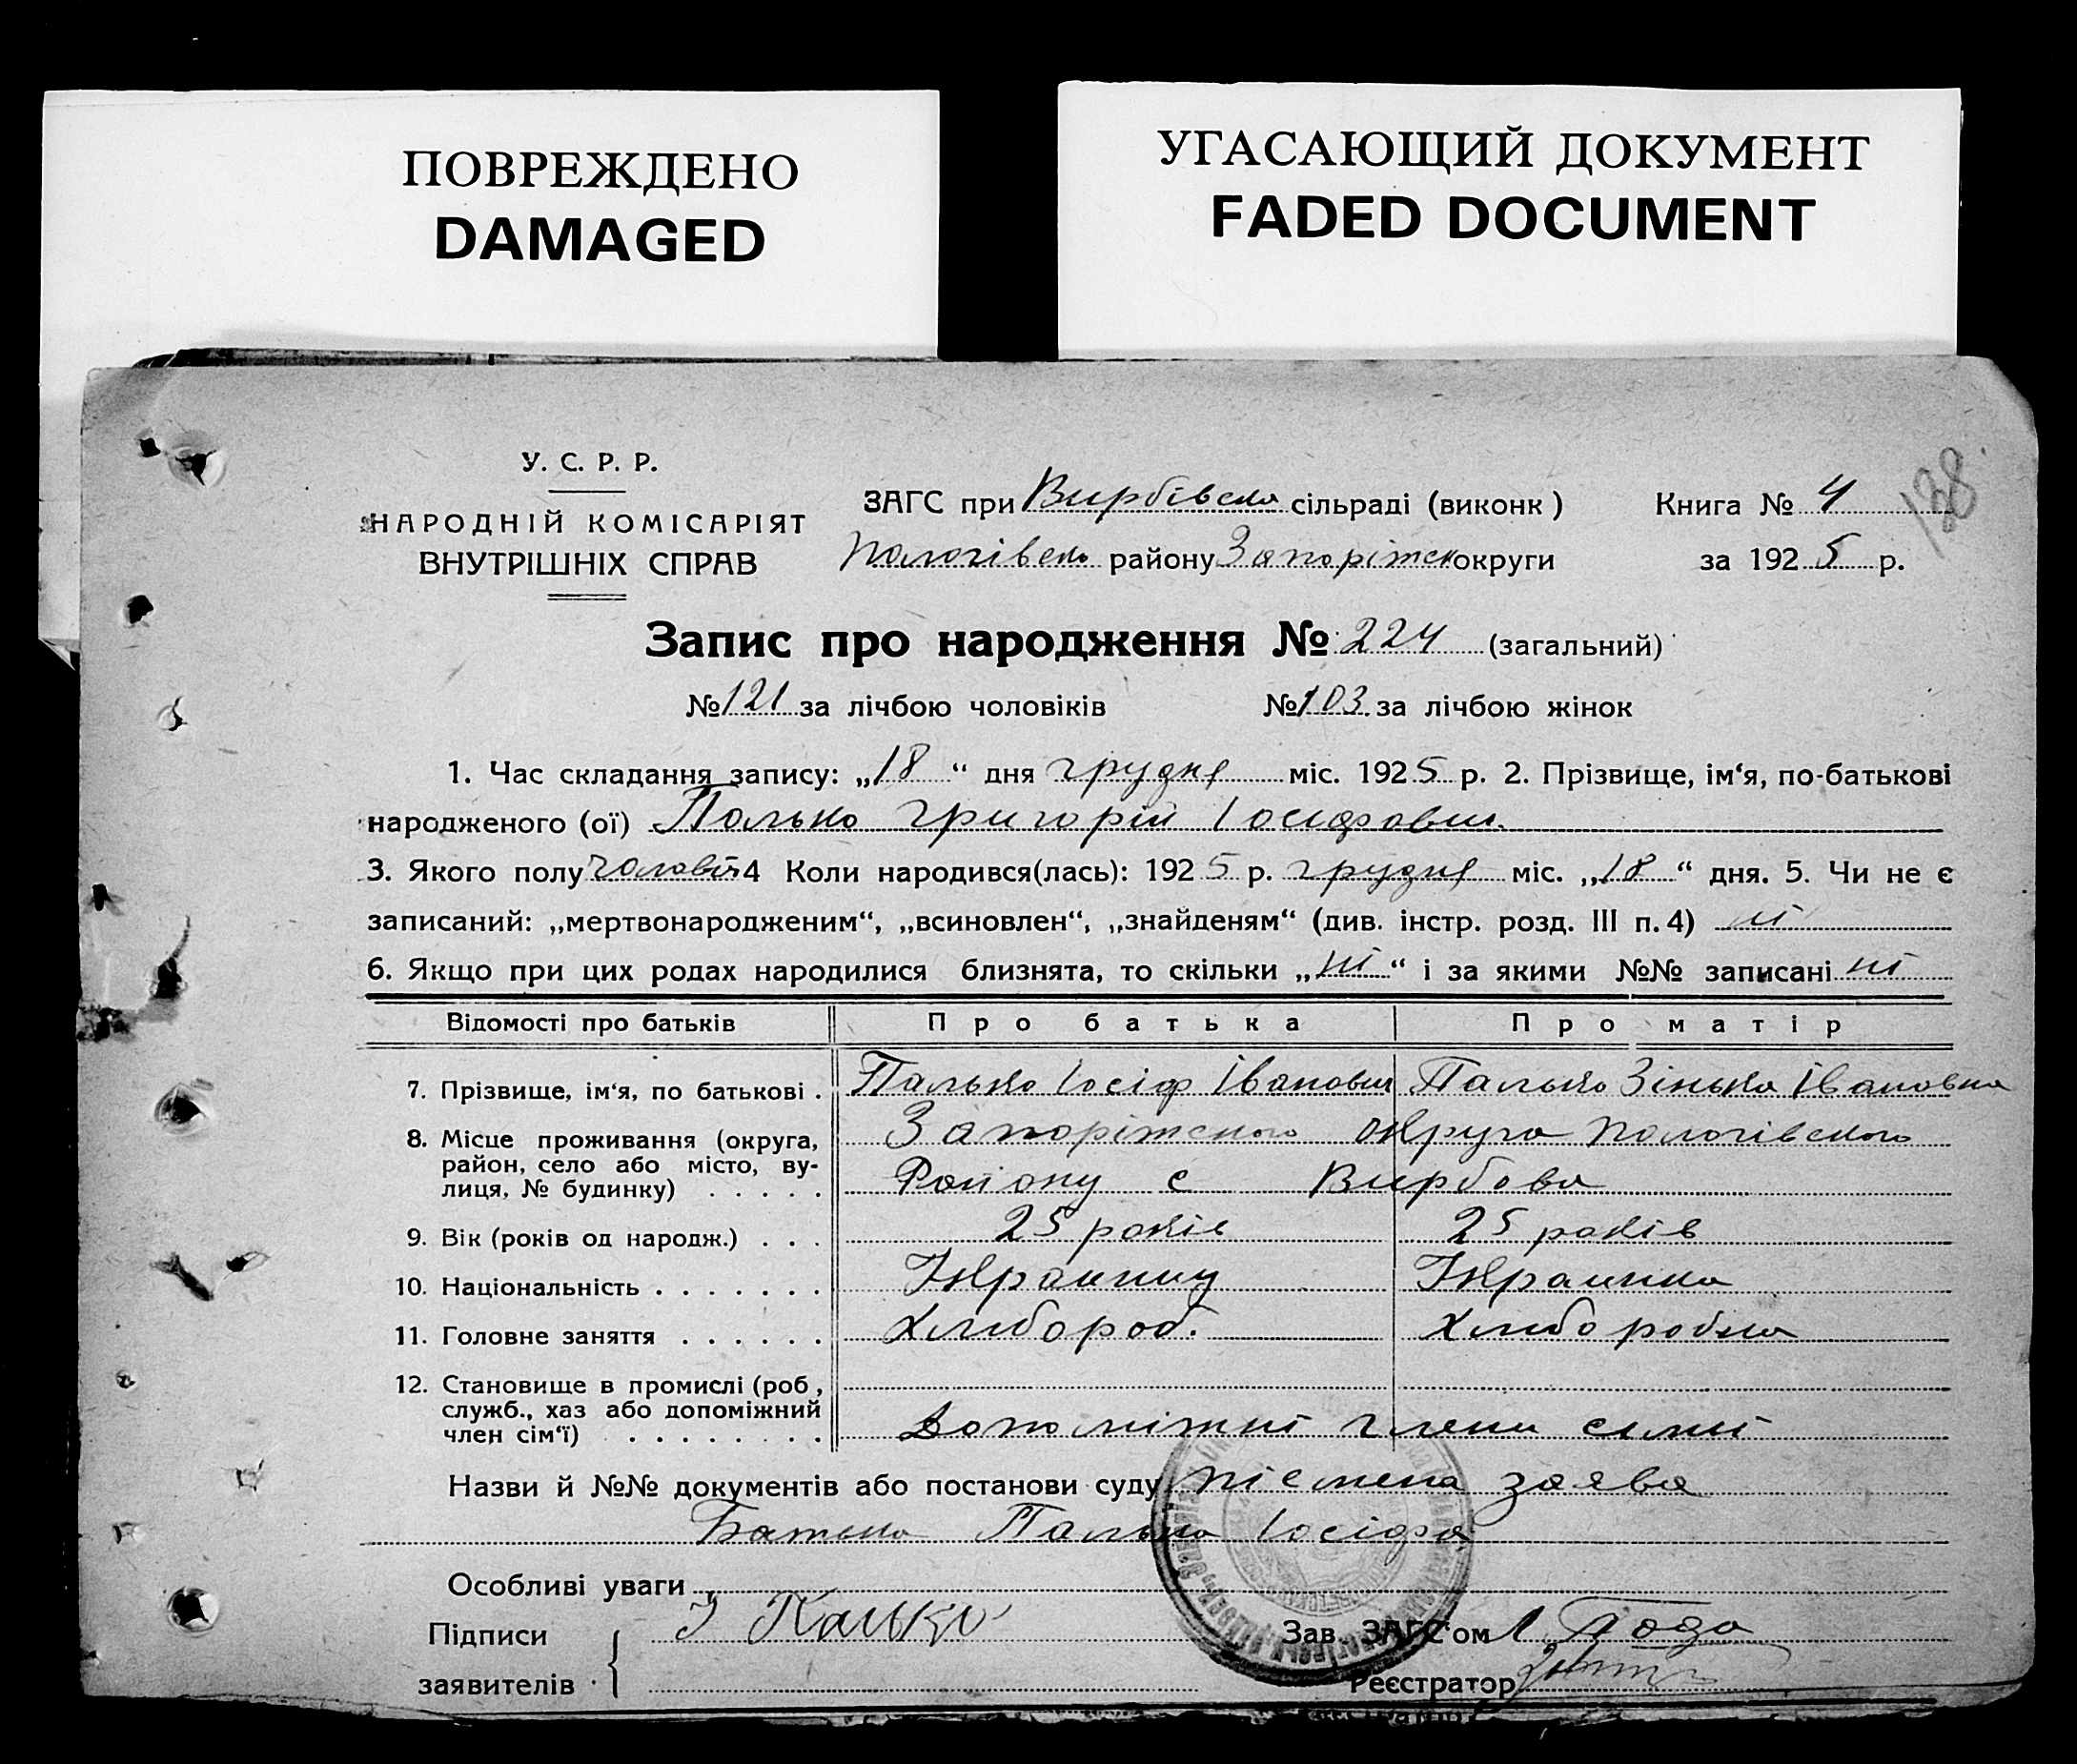 ПОВРЕЖДЕНО
DAMAGED
УГАСАЮЩИЙ ДОКУМЕНТ
FADED DOCUMENT
138
У. С. Р. Р.
НАРОДНІЙ КОМІСАРІЯТ
ВНУТРІШНІХ СПРАВ
ЗАГС при Вирбівськ сільраді (виконк )
Пологівськ району Запоріжськ округи
Книга № 4
за 1925 р.
Запис про народження № 224 (загальний)
№ 121 за лічбою чоловіків № 103 за лічбою жінок
1. Час складання запису: „18“ дня грудня міс. 1925 р. 2. Прізвище, ім‘я, по-батькові
народженого (ої) Палько Григорій Іосифович
3. Якого полу чоловіч 4 Коли народився(лась): 1925 р. грудня міс. „18“ дня. 5. Чи не є
записаний: „мертвонародженим“, „всиновлен“, „знайденям“ (див. інстр. розд. III п. 4) ні
6. Якщо при цих родах народилися близнята, то скільки „ні“ і за якими №№ записані ні
Відомості про батьків Про батька Про матір
7. Прізвище, ім‘я, по батькові . Палько Іосіф Іванович Палько Зінька Івановна
8. Місце проживання (округа, Запоріжського округа Пологівського
район, село або місто, ву-
лиця, № будинку) . . . . . Району с Вирбова
9. Вік (років од народж.) . . . 25 років 25 років
10. Національність . . . . . . . Украинц Украинка
11. Головне заняття . . . . . . Хлибороб. Хлиборобка
12. Становище в промислі (роб ,
служб., хаз або допоміжний
член сім‘ї) . . . . . . . . Допоміжні члени симії
Назви й №№ документів або постанови суду písмена заява
Батька Палька Іосіфа
Особливі уваги
Підписи І Палько
заявителів
Зав. ЗАГС‘ом
Реєстратор